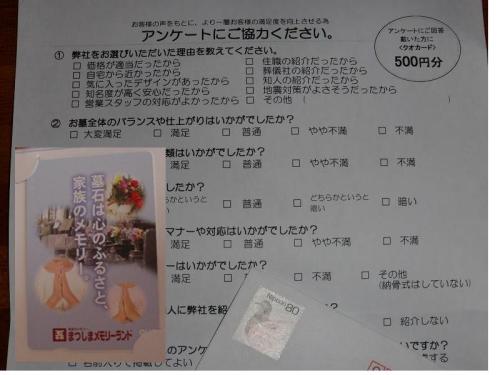 お客様の声をもとに、より一層お客様の満足度を向上させる為
アンケートにご協力ください。
アンケートにご回答
戴いた方に
<クオカード>
500円分
① 弊社をお選びいただいた理由を教えてください。
□ 価格が適当だったから □ 住職の紹介だったから
□ 自宅から近かったから □ 葬儀社の紹介だったから
□ 気に入ったデザインがあったから □ 知人の紹介だったから
□ 知名度が高く安心だったから □ 地震対策がよさそうだったから
□ 営業スタッフの対応がよかったから □ その他 ( )
② お墓全体のバランスや仕上がりはいかがでしたか?
□ 大変満足 □ 満足 □ 普通 □ やや不満 □ 不満
類はいかがでしたか?
満足 □ 普通 □ やや不満 □ 不満
したか?
ちらかというと □ 普通 □ どちらかというと暗い □ 暗い
マナーや対応はいかがでしたか?
満足 □ 普通 □ やや不満 □ 不満
ーはいかがでしたか?
満足 □ 不満 □ その他
(納骨式はしていない)
人に弊社を紹
□ 紹介しない
のアンケ
いですか?
名前入りで掲載してよい
する
墓石は心のふるさと、
家族のメモリー。
まつしまメモリーランド
NIPPON 80